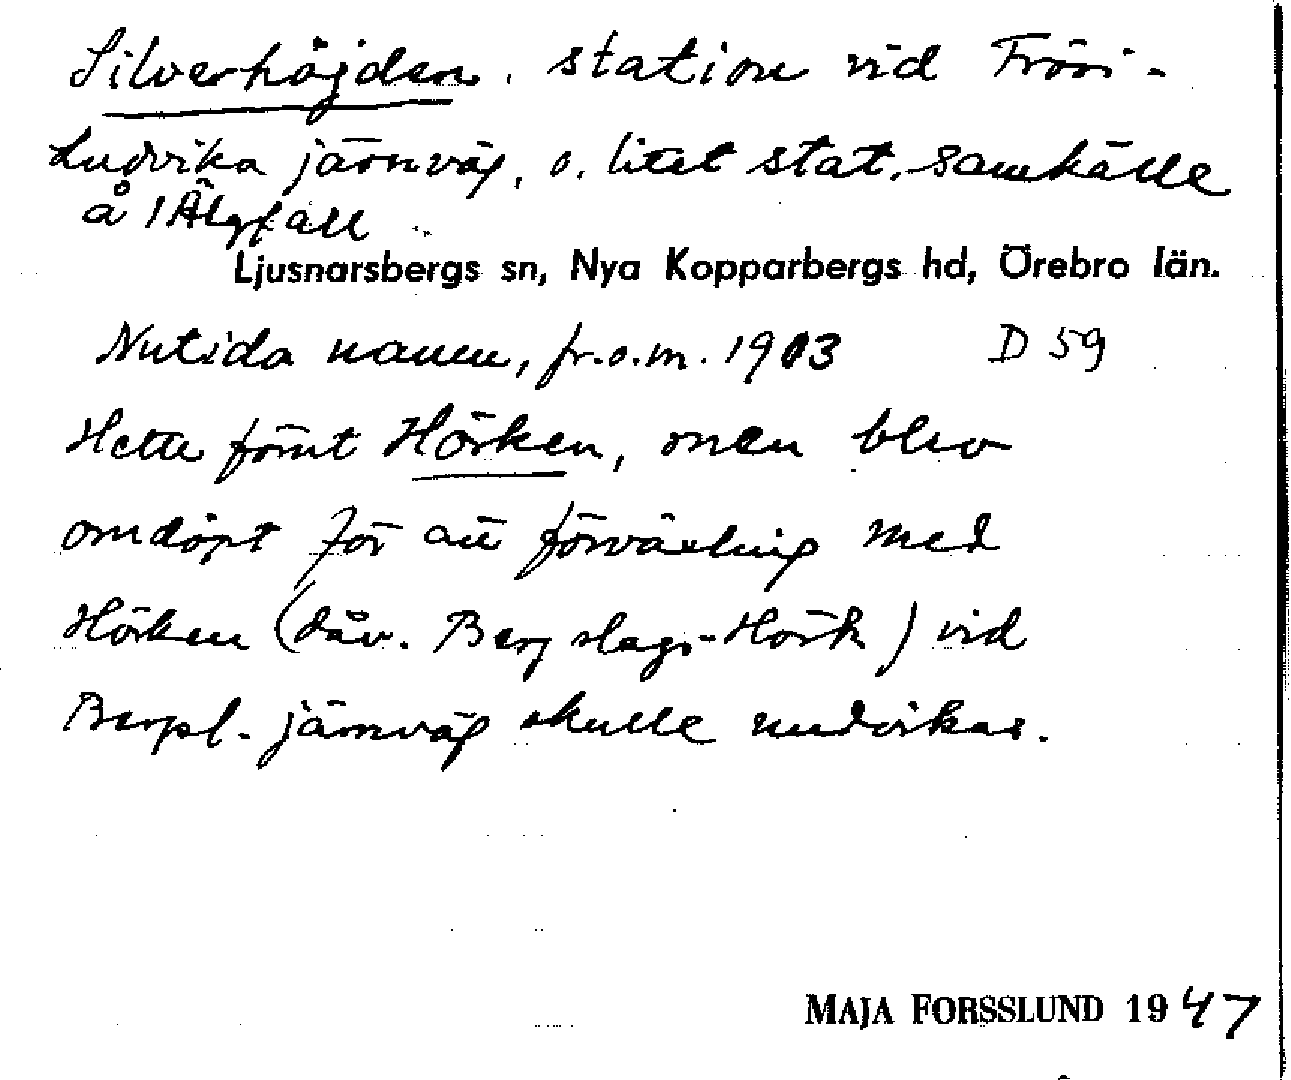 Silverhöjden, station vid Frövi-
Ludvika järnväg, o. litet stat. samhälle
å 1 Älgfall
Ljusnarsbergs sn, Nya Kopparbergs hd, Örebro län.
Nutida namn, fr.o.m. 1903 D 59
Hette förut Hörken, men blev
omdöpt för att förväxling med
Hörken (dåv. Bergslags-Hörk) vid
Bergsl. järnväg skulle undvikas.
MAJA FORSSLUND 1947